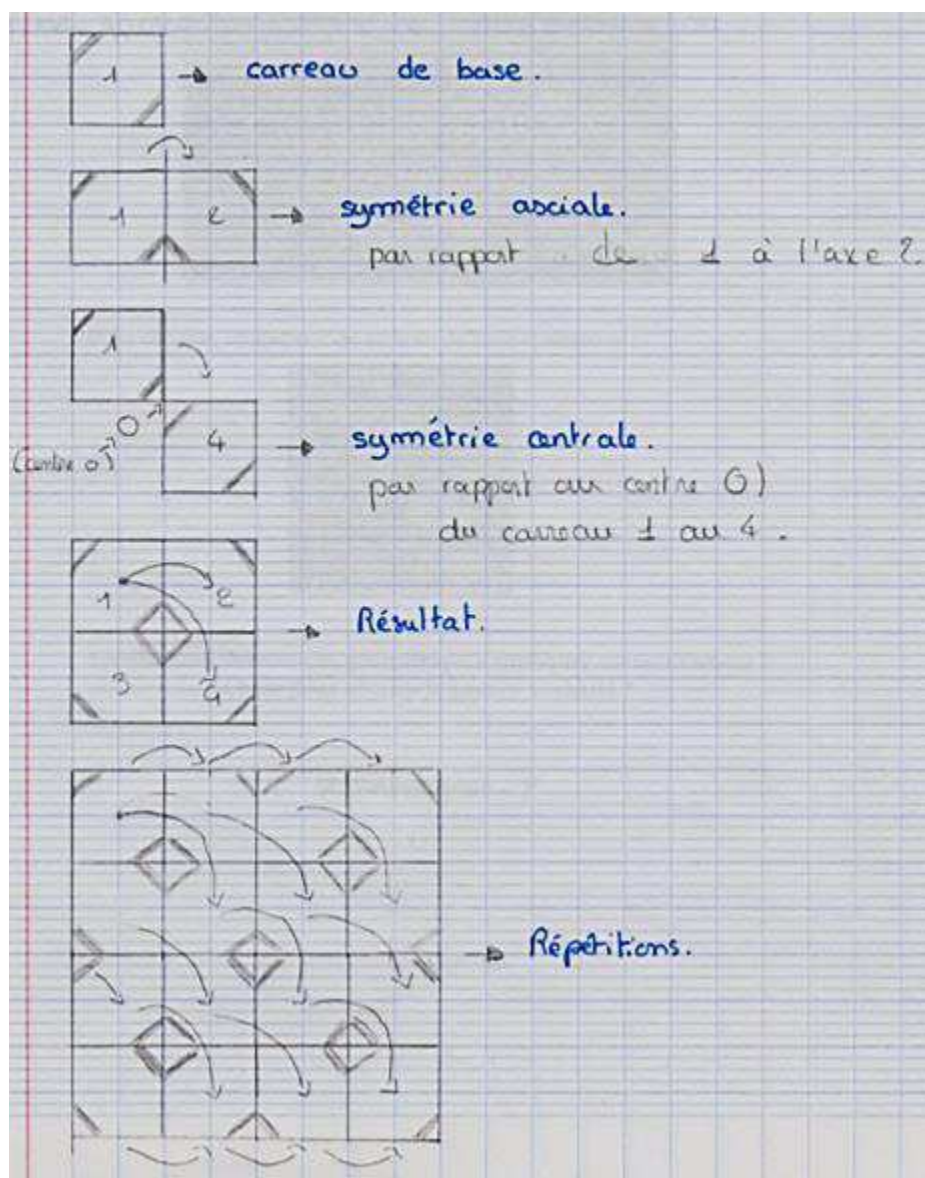 1 → carreau de base.
1 2 → symétrie asciale.
par rapport de 1 à l'axe 2.
1
O
(centre o) 4 → symétrie centrale.
par rapport au centre O)
du carreau 1 au 4.
1 2
→ Résultat.
3 4
→ Répétitions.